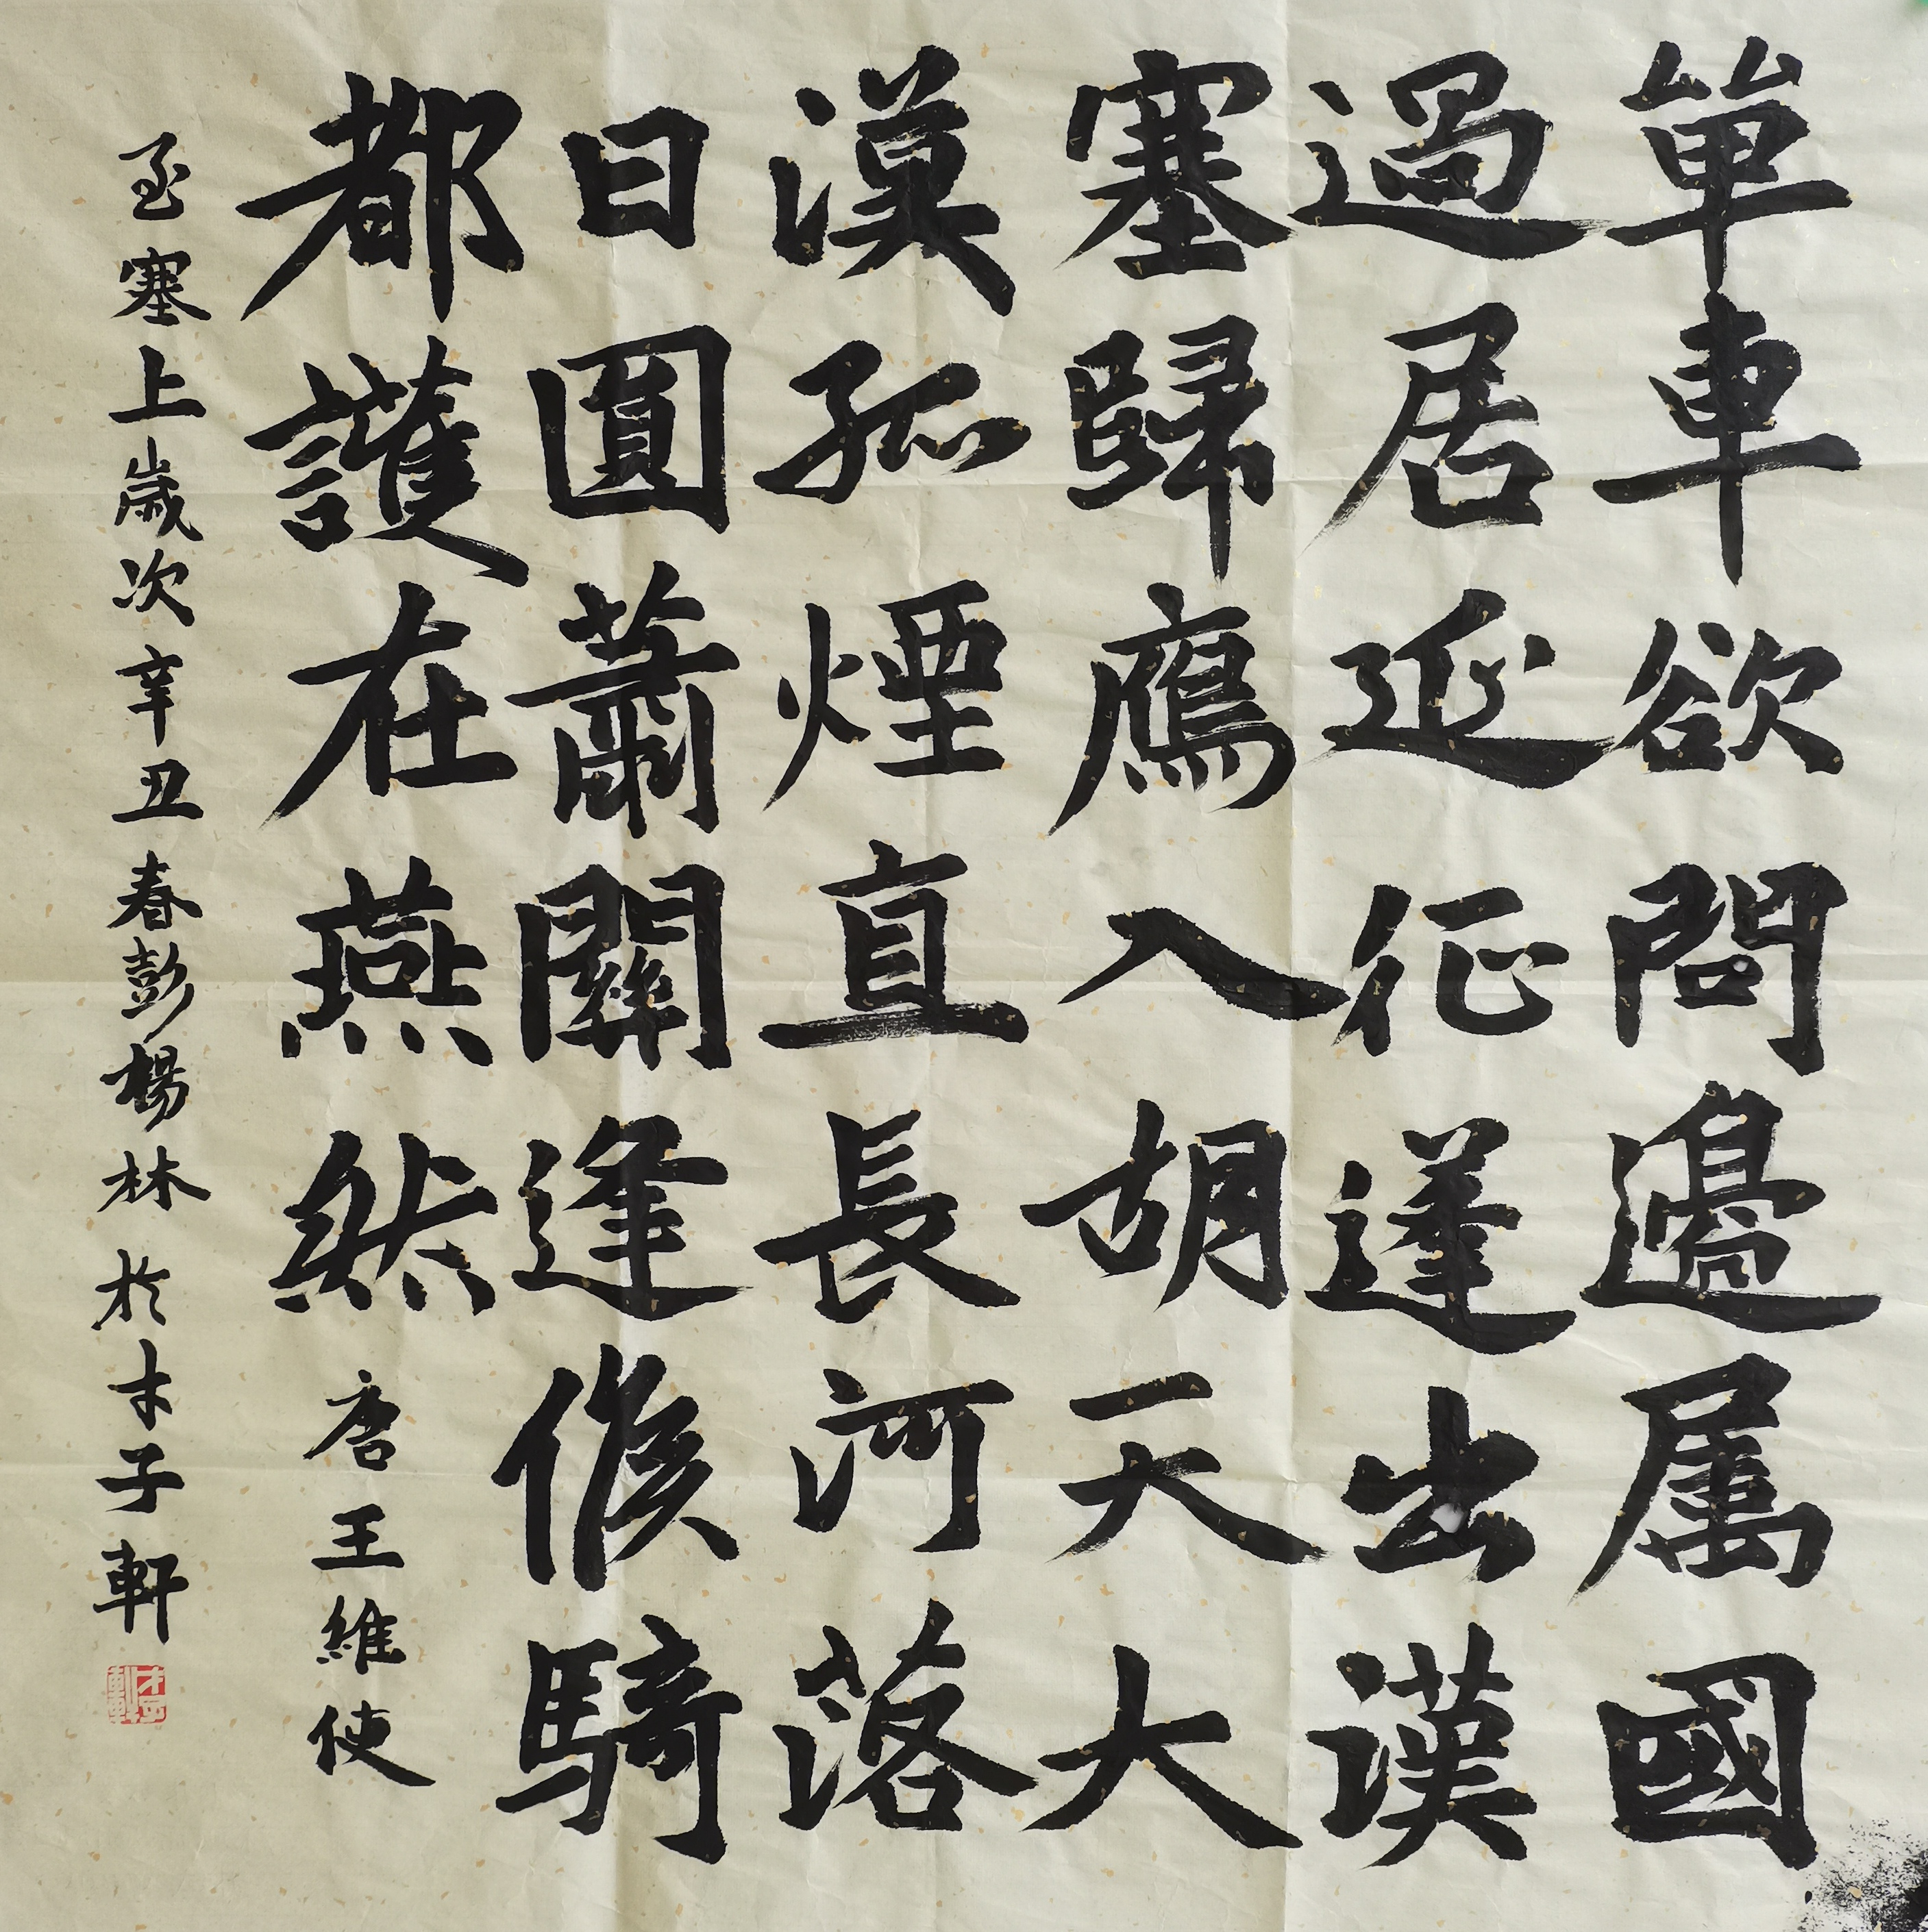 單車欲問邊属國
過居延征蓬出漢
塞歸鷹入胡天大
漠孤煙直長河落
日圓蕭關逢候騎
都護在燕然 唐王維使
至塞上歲次辛丑春彭楊林於木子軒
木子軒